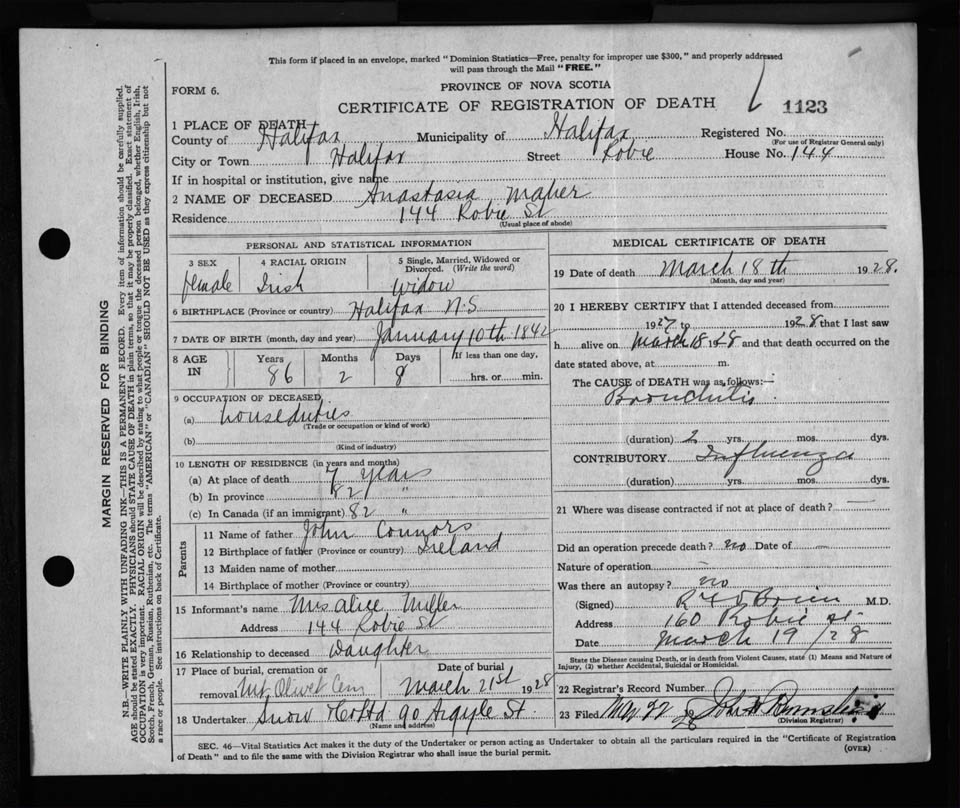 This form if placed in an envelope, marked "Dominion Statistics—Free, penalty for improper use $300," and properly addressed
will pass through the Mail "FREE."
PROVINCE OF NOVA SCOTIA
FORM 6.
CERTIFICATE OF REGISTRATION OF DEATH
1123
1 PLACE OF DEATH
County of Halifax Municipality of Halifax Registered No.
(For use of Registrar General only)
City or Town Halifax Street Robie House No. 144
If in hospital or institution, give name
2 NAME OF DECEASED Anastasia Maher
Residence 144 Robie St
(Usual place of abode)
PERSONAL AND STATISTICAL INFORMATION
3 SEX 4 RACIAL ORIGIN 5 Single, Married, Widowed or
Divorced. (Write the word)
female Irish Widow
6 BIRTHPLACE (Province or country) Halifax N.S
7 DATE OF BIRTH (month, day and year) January 10th 1842
8 AGE IN Years Months Days If less than one day,
86 2 8 hrs. or min.
9 OCCUPATION OF DECEASED
(a) houseduties
(Trade or occupation or kind of work)
(b)
(Kind of industry)
10 LENGTH OF RESIDENCE (in years and months)
(a) At place of death 7 years
(b) In province 82 "
(c) In Canada (if an immigrant) 82 "
Parents
11 Name of father John Connors
12 Birthplace of father (Province or country) Ireland
13 Maiden name of mother
14 Birthplace of mother (Province or country)
15 Informant's name Mrs Alice Miller
Address 144 Robie St
16 Relationship to deceased Daughter
17 Place of burial, cremation or Date of burial
removal Mt Olivet Cem March 21st 1928
18 Undertaker Snow & Co Ltd 90 Argyle St.
(Name and address)
MEDICAL CERTIFICATE OF DEATH
19 Date of death March 18th 1928.
(Month, day and year)
20 I HEREBY CERTIFY that I attended deceased from
1927 to 1928 that I last saw
h alive on March 18 1928 and that death occurred on the
date stated above, at m.
The CAUSE of DEATH was as follows:—
Bronchitis
(duration) 2 yrs. mos. dys.
CONTRIBUTORY Influenza
(duration) yrs. mos. dys.
21 Where was disease contracted if not at place of death?
Did an operation precede death? no Date of
Nature of operation
Was there an autopsy? no
(Signed) O'Brien M.D.
Address 160 Robie St
Date March 19/28
State the Disease causing Death, or in death from Violent Causes, state (1) Means and Nature of
Injury, (2) whether Accidental, Suicidal or Homicidal.
22 Registrar's Record Number
23 Filed 22 28 John
(Division Registrar)
SEC. 46—Vital Statistics Act makes it the duty of the Undertaker or person acting as Undertaker to obtain all the particulars required in the "Certificate of Registration
of Death" and to file the same with the Division Registrar who shall issue the burial permit.
(OVER)
MARGIN RESERVED FOR BINDING
N.B.—WRITE PLAINLY WITH UNFADING INK—THIS IS A PERMANENT RECORD. Every item of information should be carefully supplied.
AGE should be stated EXACTLY. PHYSICIANS should STATE CAUSE OF DEATH in plain terms, so that it may be properly classified. Exact statement of
OCCUPATION is very important. RACIAL ORIGIN will be described by stating to what people or tongue the deceased person belonged, whether English, Irish,
Scotch, French, German, Russian, Ruthenian, etc. The terms "AMERICAN" or "CANADIAN" SHOULD NOT BE USED as they express citizenship but not
a race or people. See instructions on back of Certificate.